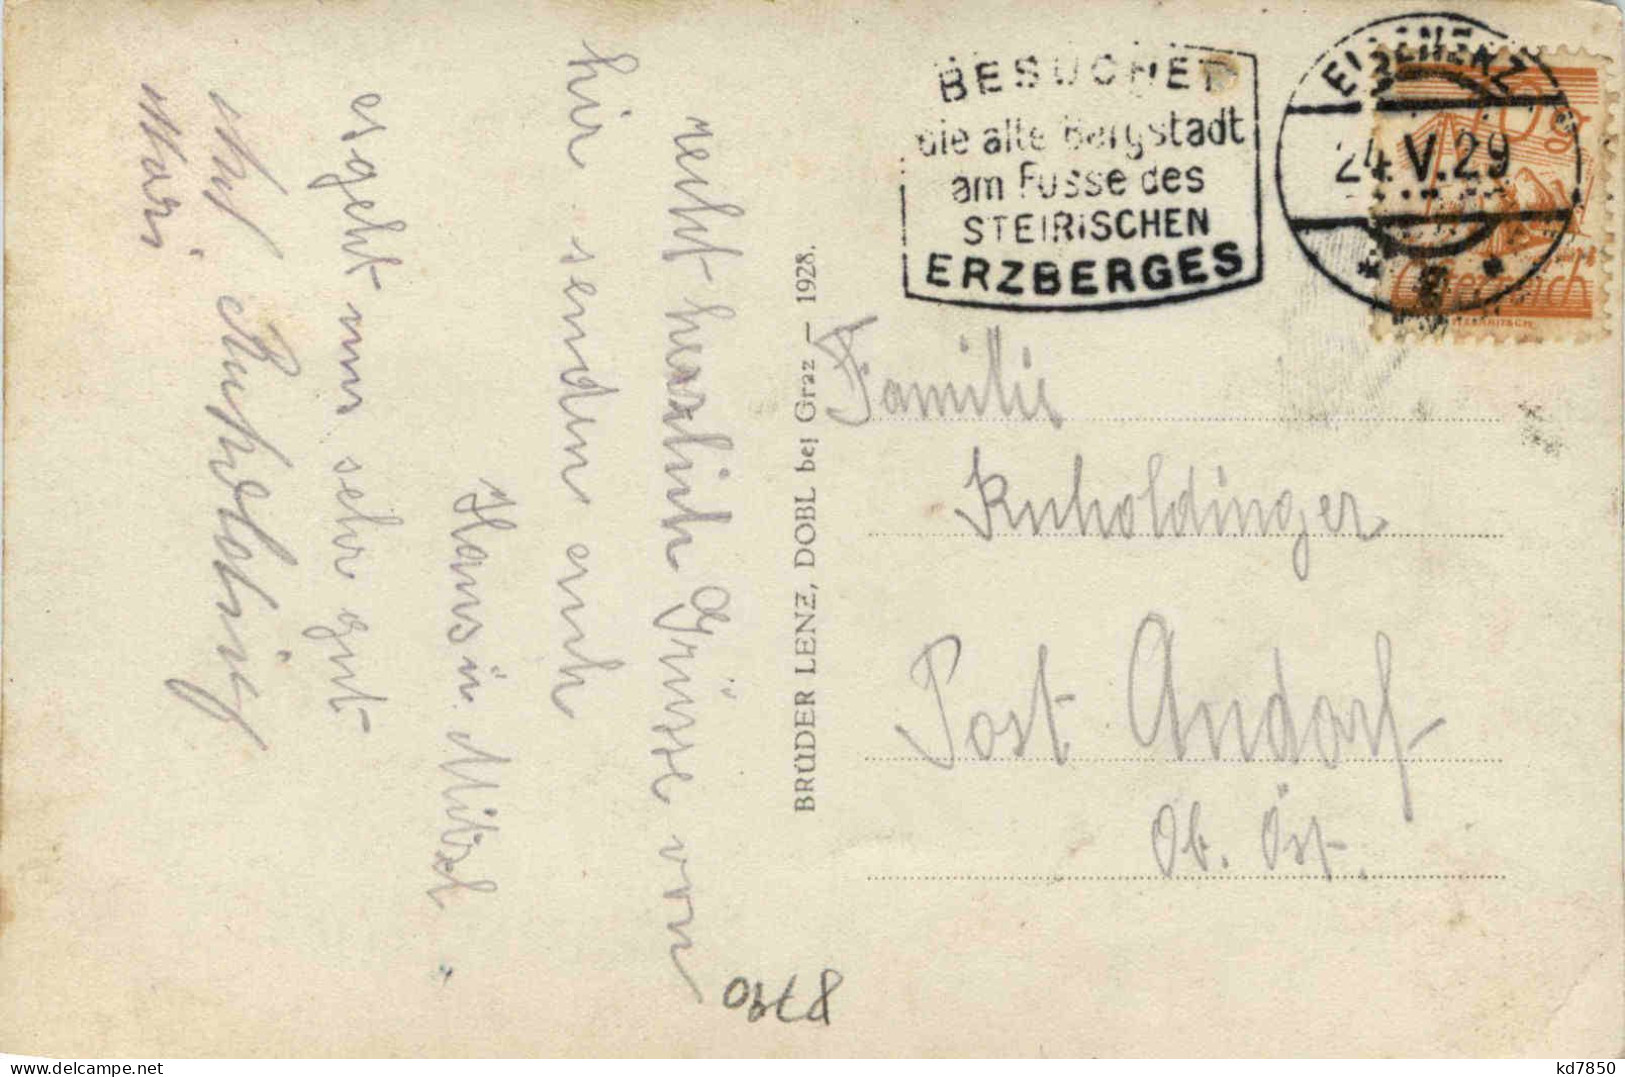 BESUCHET
die alte Bergstadt
am Fusse des
STEIRISCHEN
ERZBERGES
EISENERZ
24.V.29
10g
Österreich
recht herzlich Grüsse von
hir senden euch
Hans u. Mitzl.
es geht uns sehr gut
Mari
BRÜDER LENZ, DOBL bei Graz — 1928.
Familie
Kuholdinger
Post Andorf
Ob. Öst.
8790
kd7850